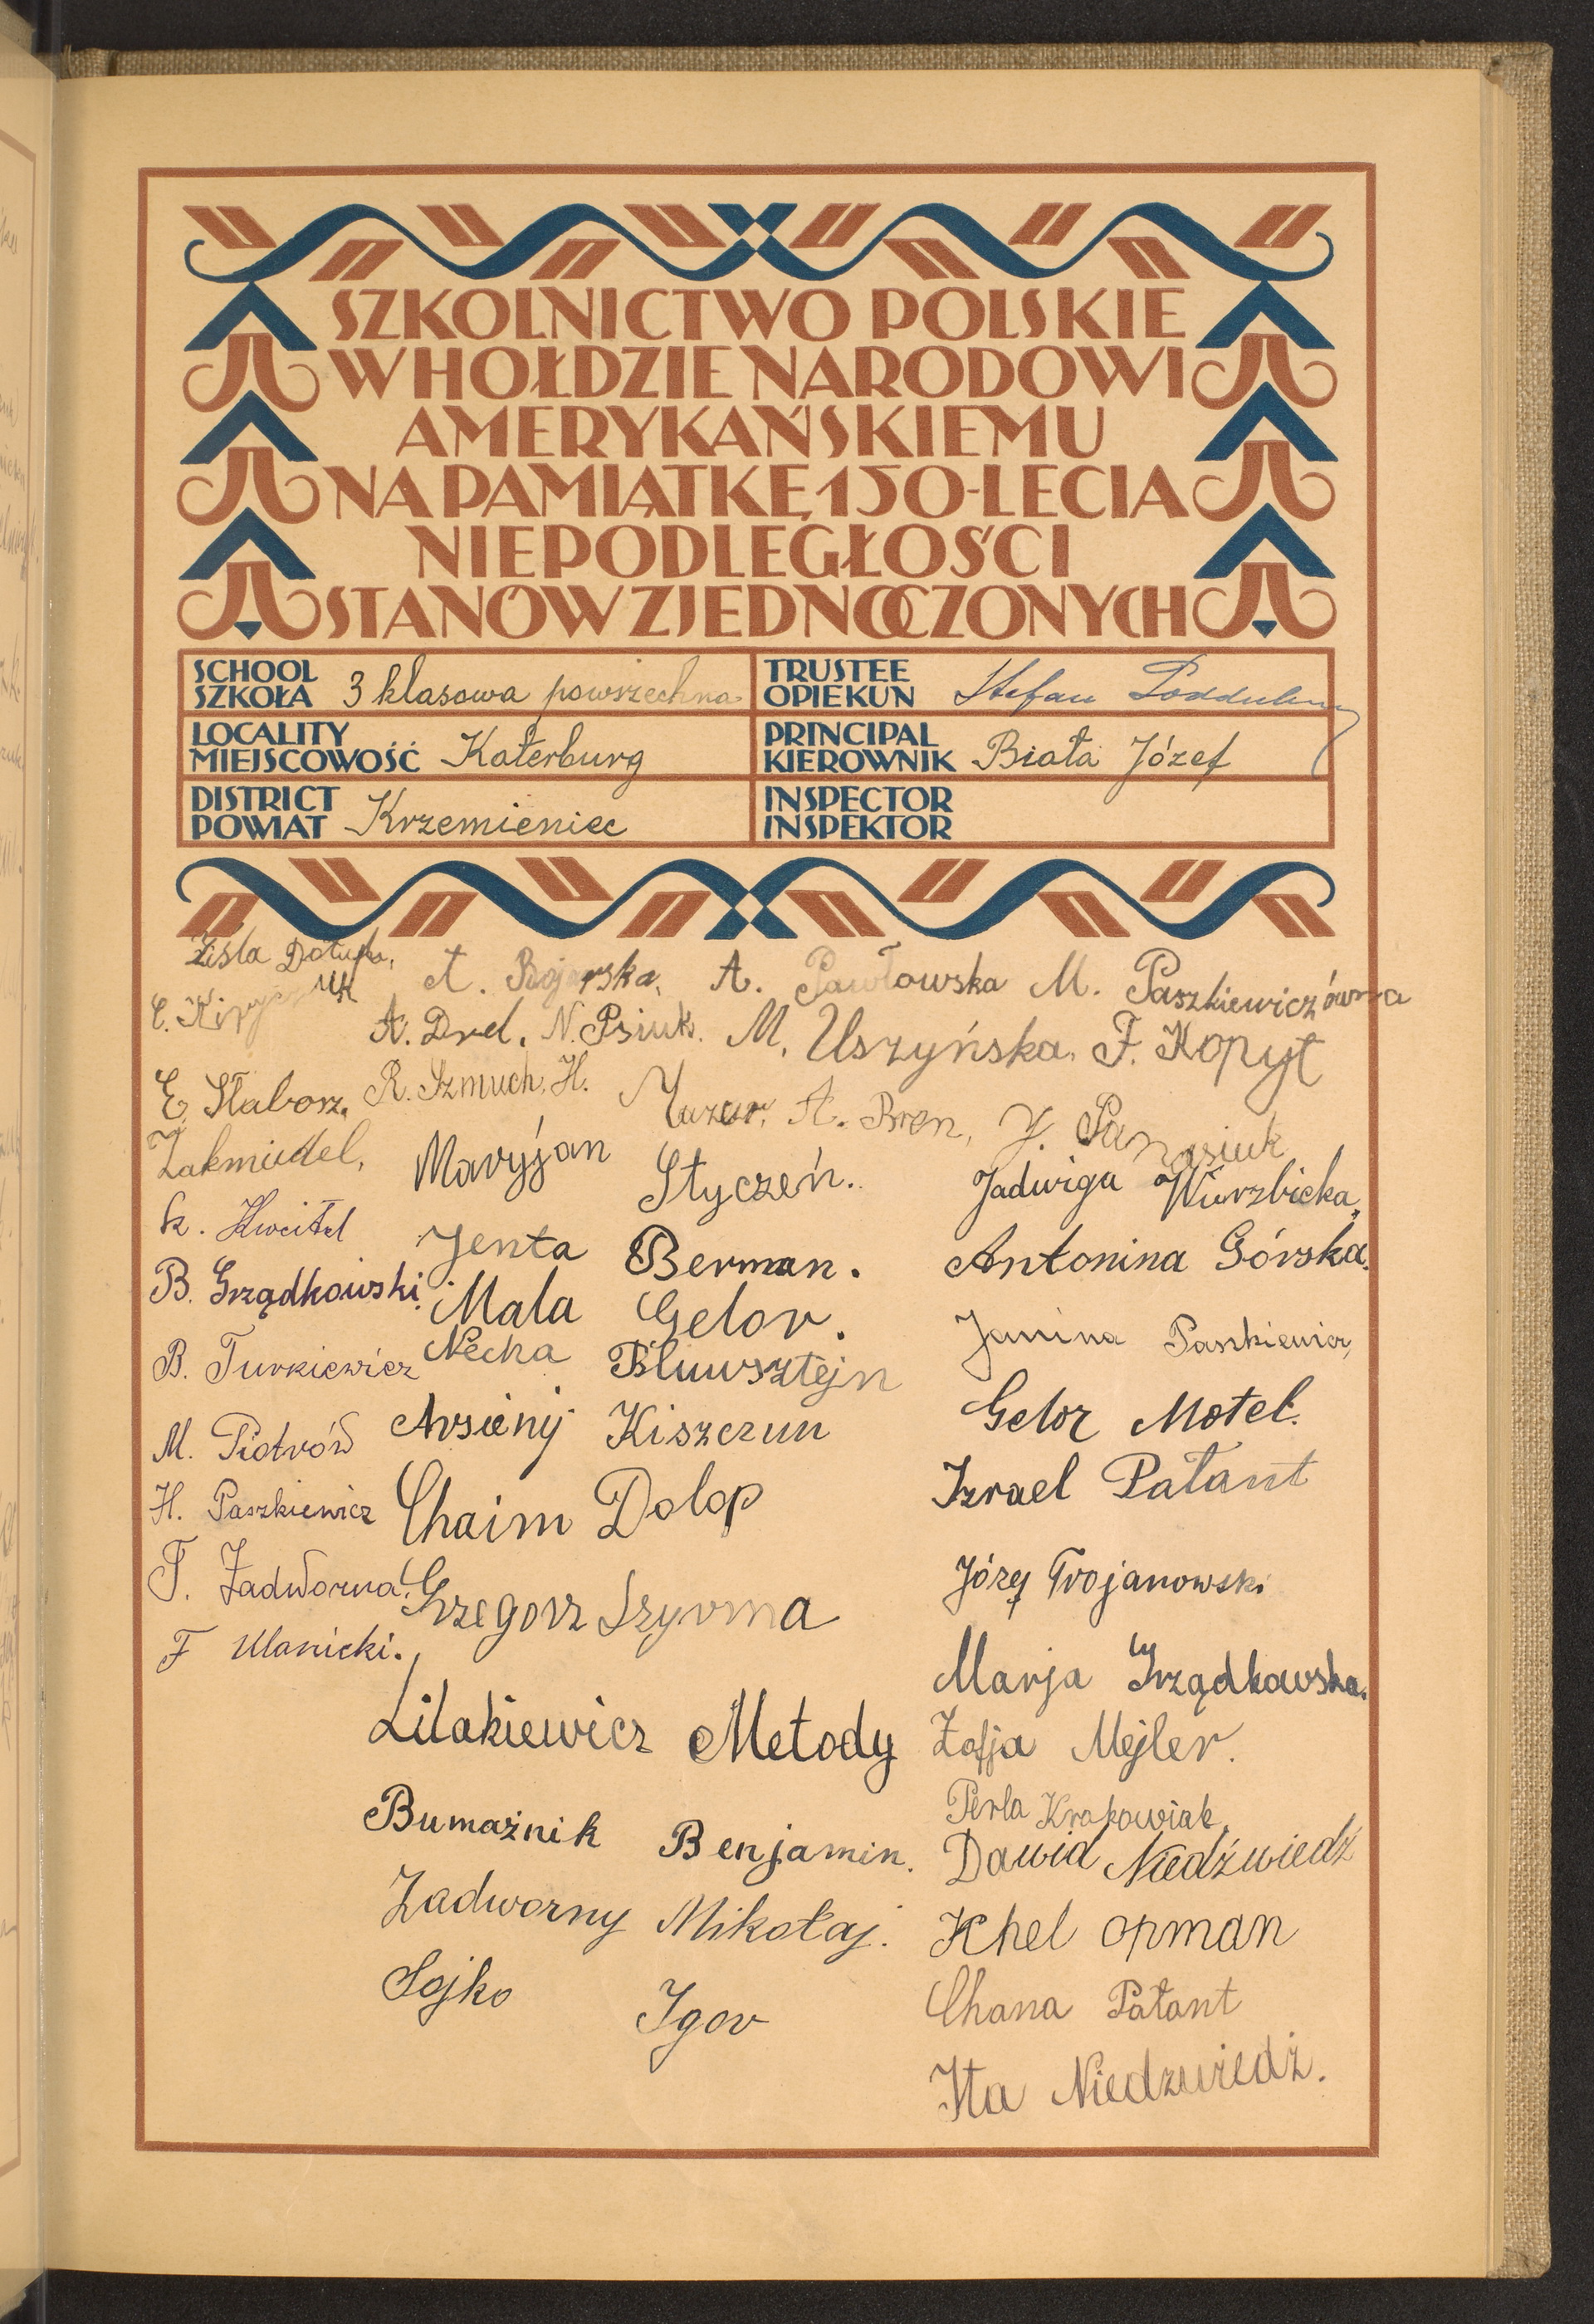 SZKOLNICTWO POLSKIE
W HOŁDZIE NARODOWI
AMERYKAŃSKIEMU
NA PAMIĄTKĘ 150-LECIA
NIEPODLEGŁOŚCI
STANÓW ZJEDNOCZONYCH
SCHOOL
SZKOŁA 3 klasowa powszechna
TRUSTEE
OPIEKUN Stefan
LOCALITY
MIEJSCOWOŚĆ Katerburg
PRINCIPAL
KIEROWNIK Biała Józef
DISTRICT
POWIAT Krzemieniec
INSPECTOR
INSPEKTOR
A. Pawłowska M. Paszkiewiczówna
A. Drel. N. Psiuk. M. Uszyńska. F. Kopyt
E. Słaborz. R. Szmuch. H. Mazur. A. Bren, J. Panasiuk
Maryjan Styczeń.
Jadwiga Wierzbicka.
B. Grządkowski.
Jenta Berman.
Antonina Górska.
Mala Gelor.
Janina Paszkiewicz,
B. Turkiewicz
Necha Bluwsztejn
M. Piotrów
Arsienij Kiszczun
Gelor Motel.
H. Paszkiewicz
Chaim Dolop
Izrael Pałant
T. Zadworna.
Grzegorz Szyrma
Józef Trojanowski
F Ulanicki.
Marja Grządkowska.
Lilakiewicz Metody
Zofja Mejler.
Bumażnik Benjamin.
Perla Krakowiak.
Dawid Niedźwiedź
Zadworny Mikołaj.
Khel opman
Sojko Igor
Chana Pałant
Ita Niedzwiedż.